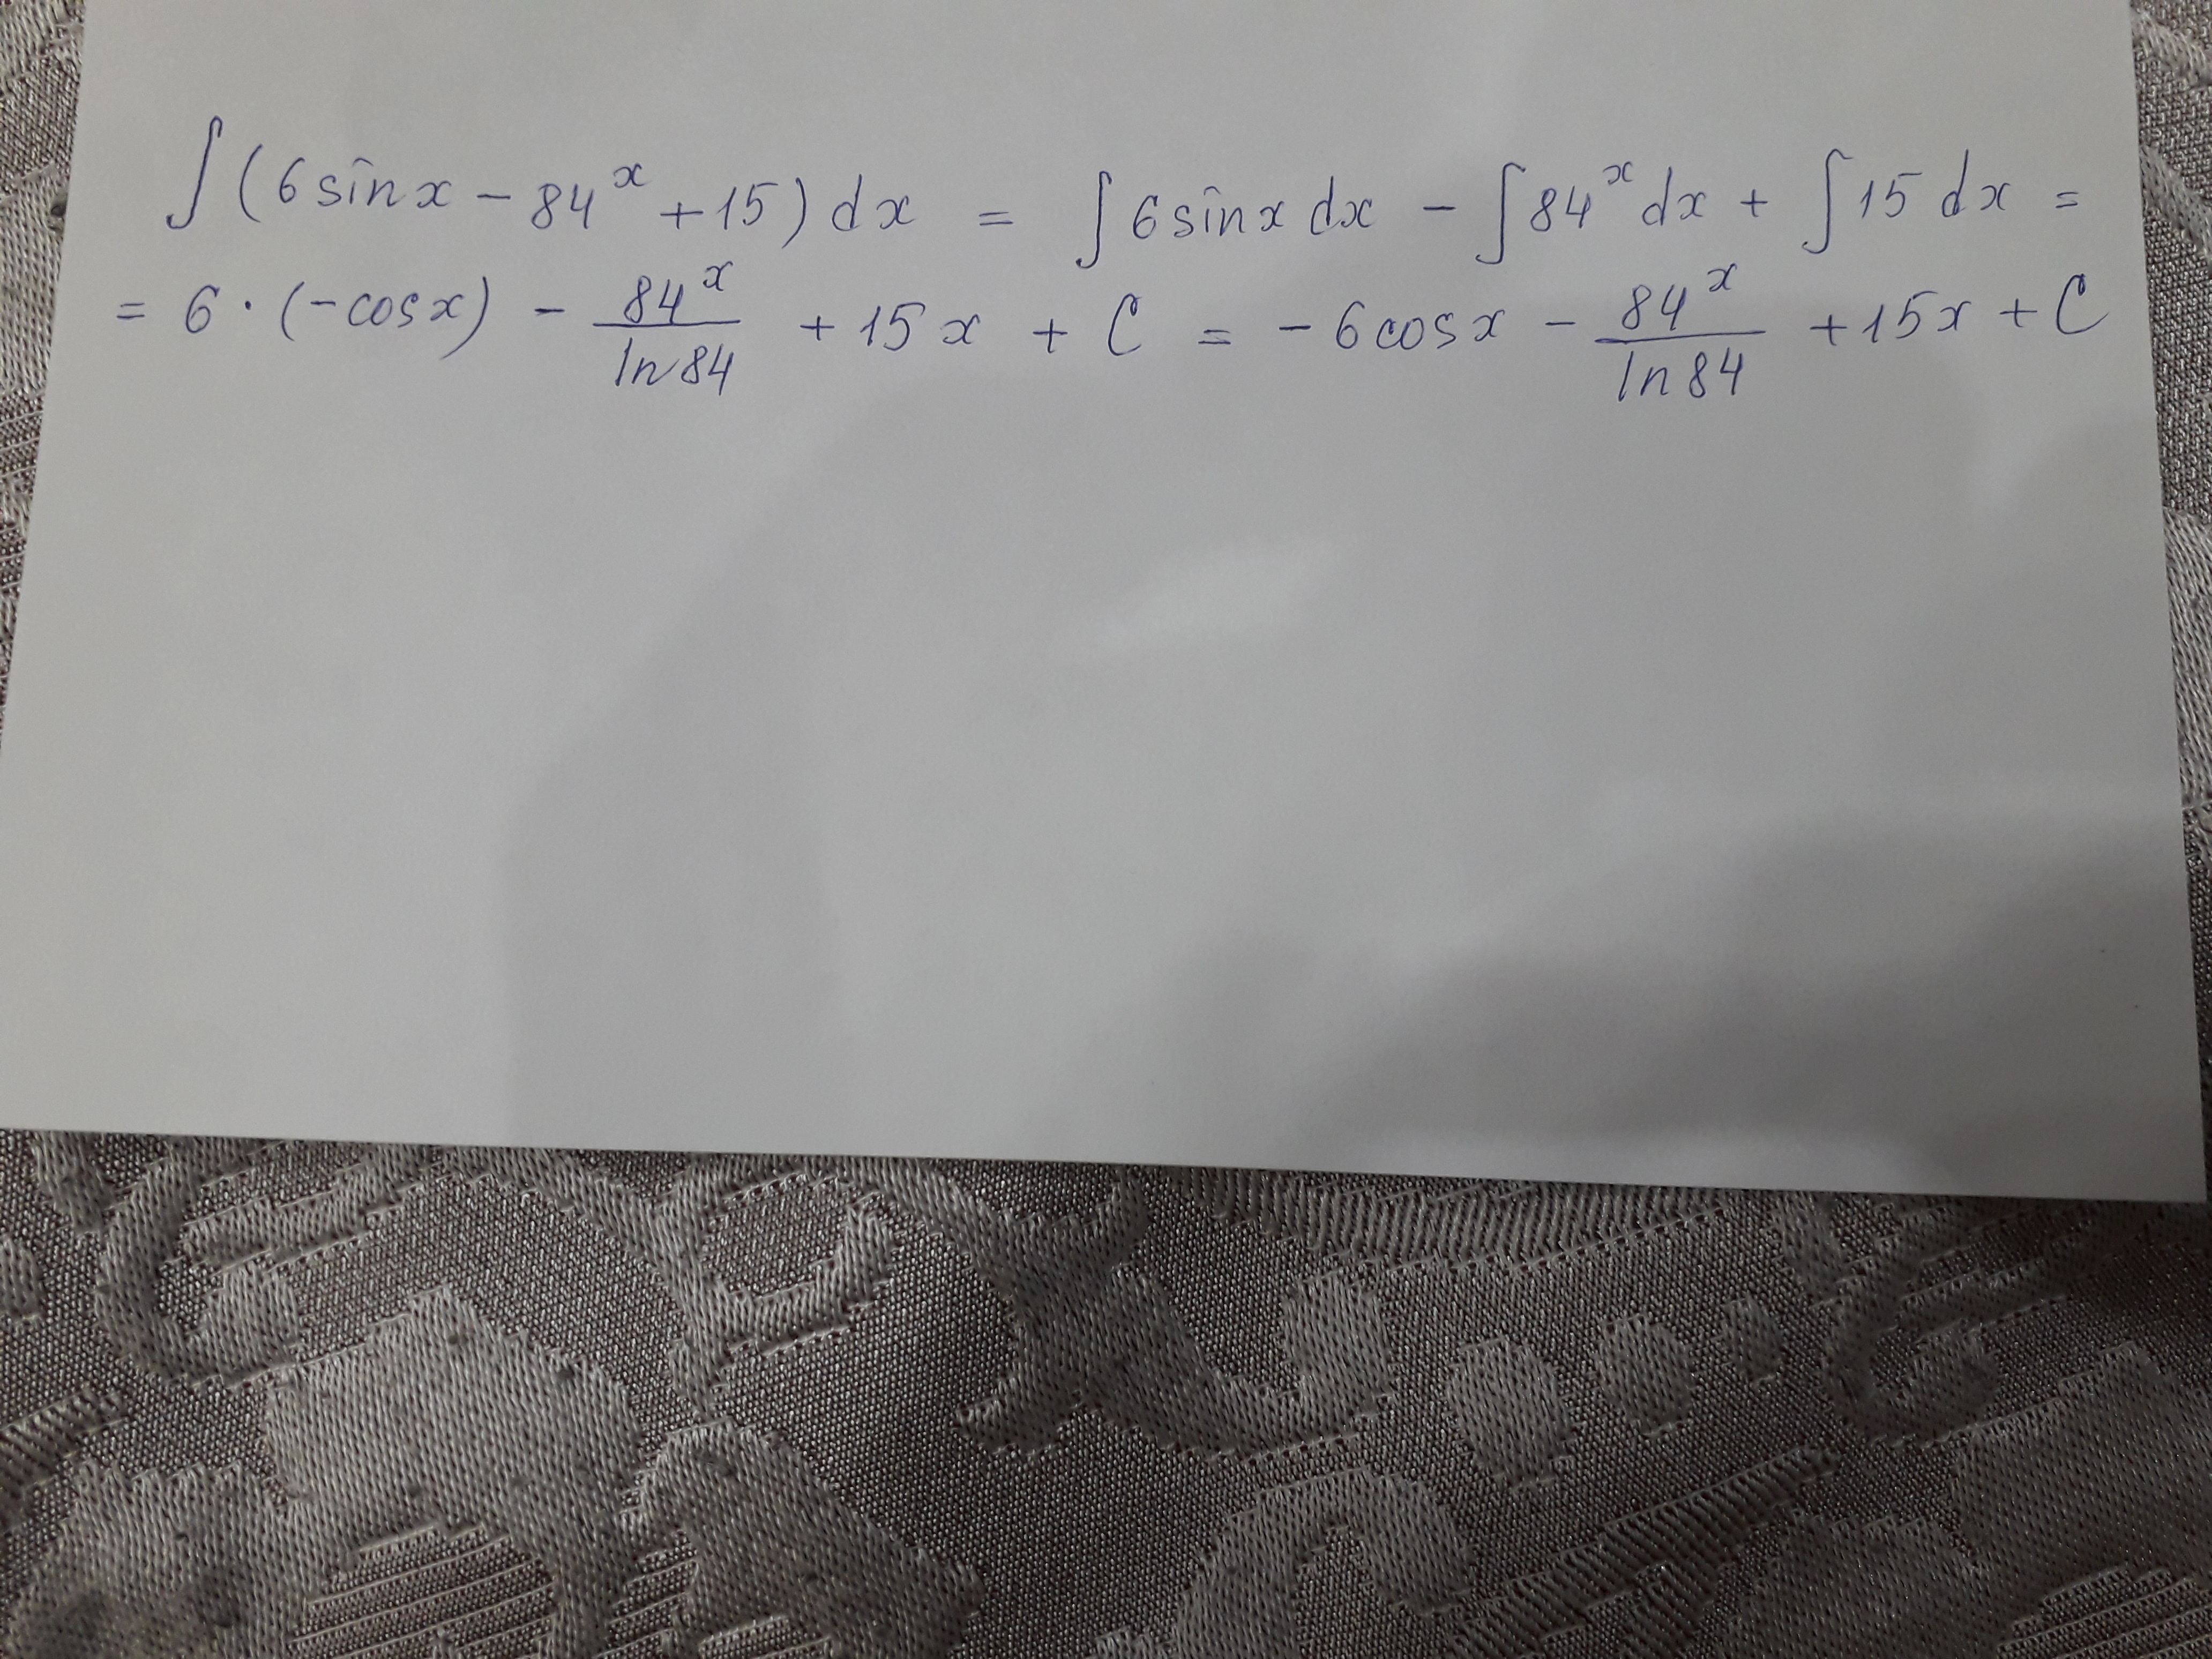 ∫(6sinx − 84^x + 15)dx = ∫6sinx dx − ∫84^x dx + ∫15 dx =
= 6 · (−cosx) − 84^x/ln84 + 15x + C = −6cosx − 84^x/ln84 + 15x + C